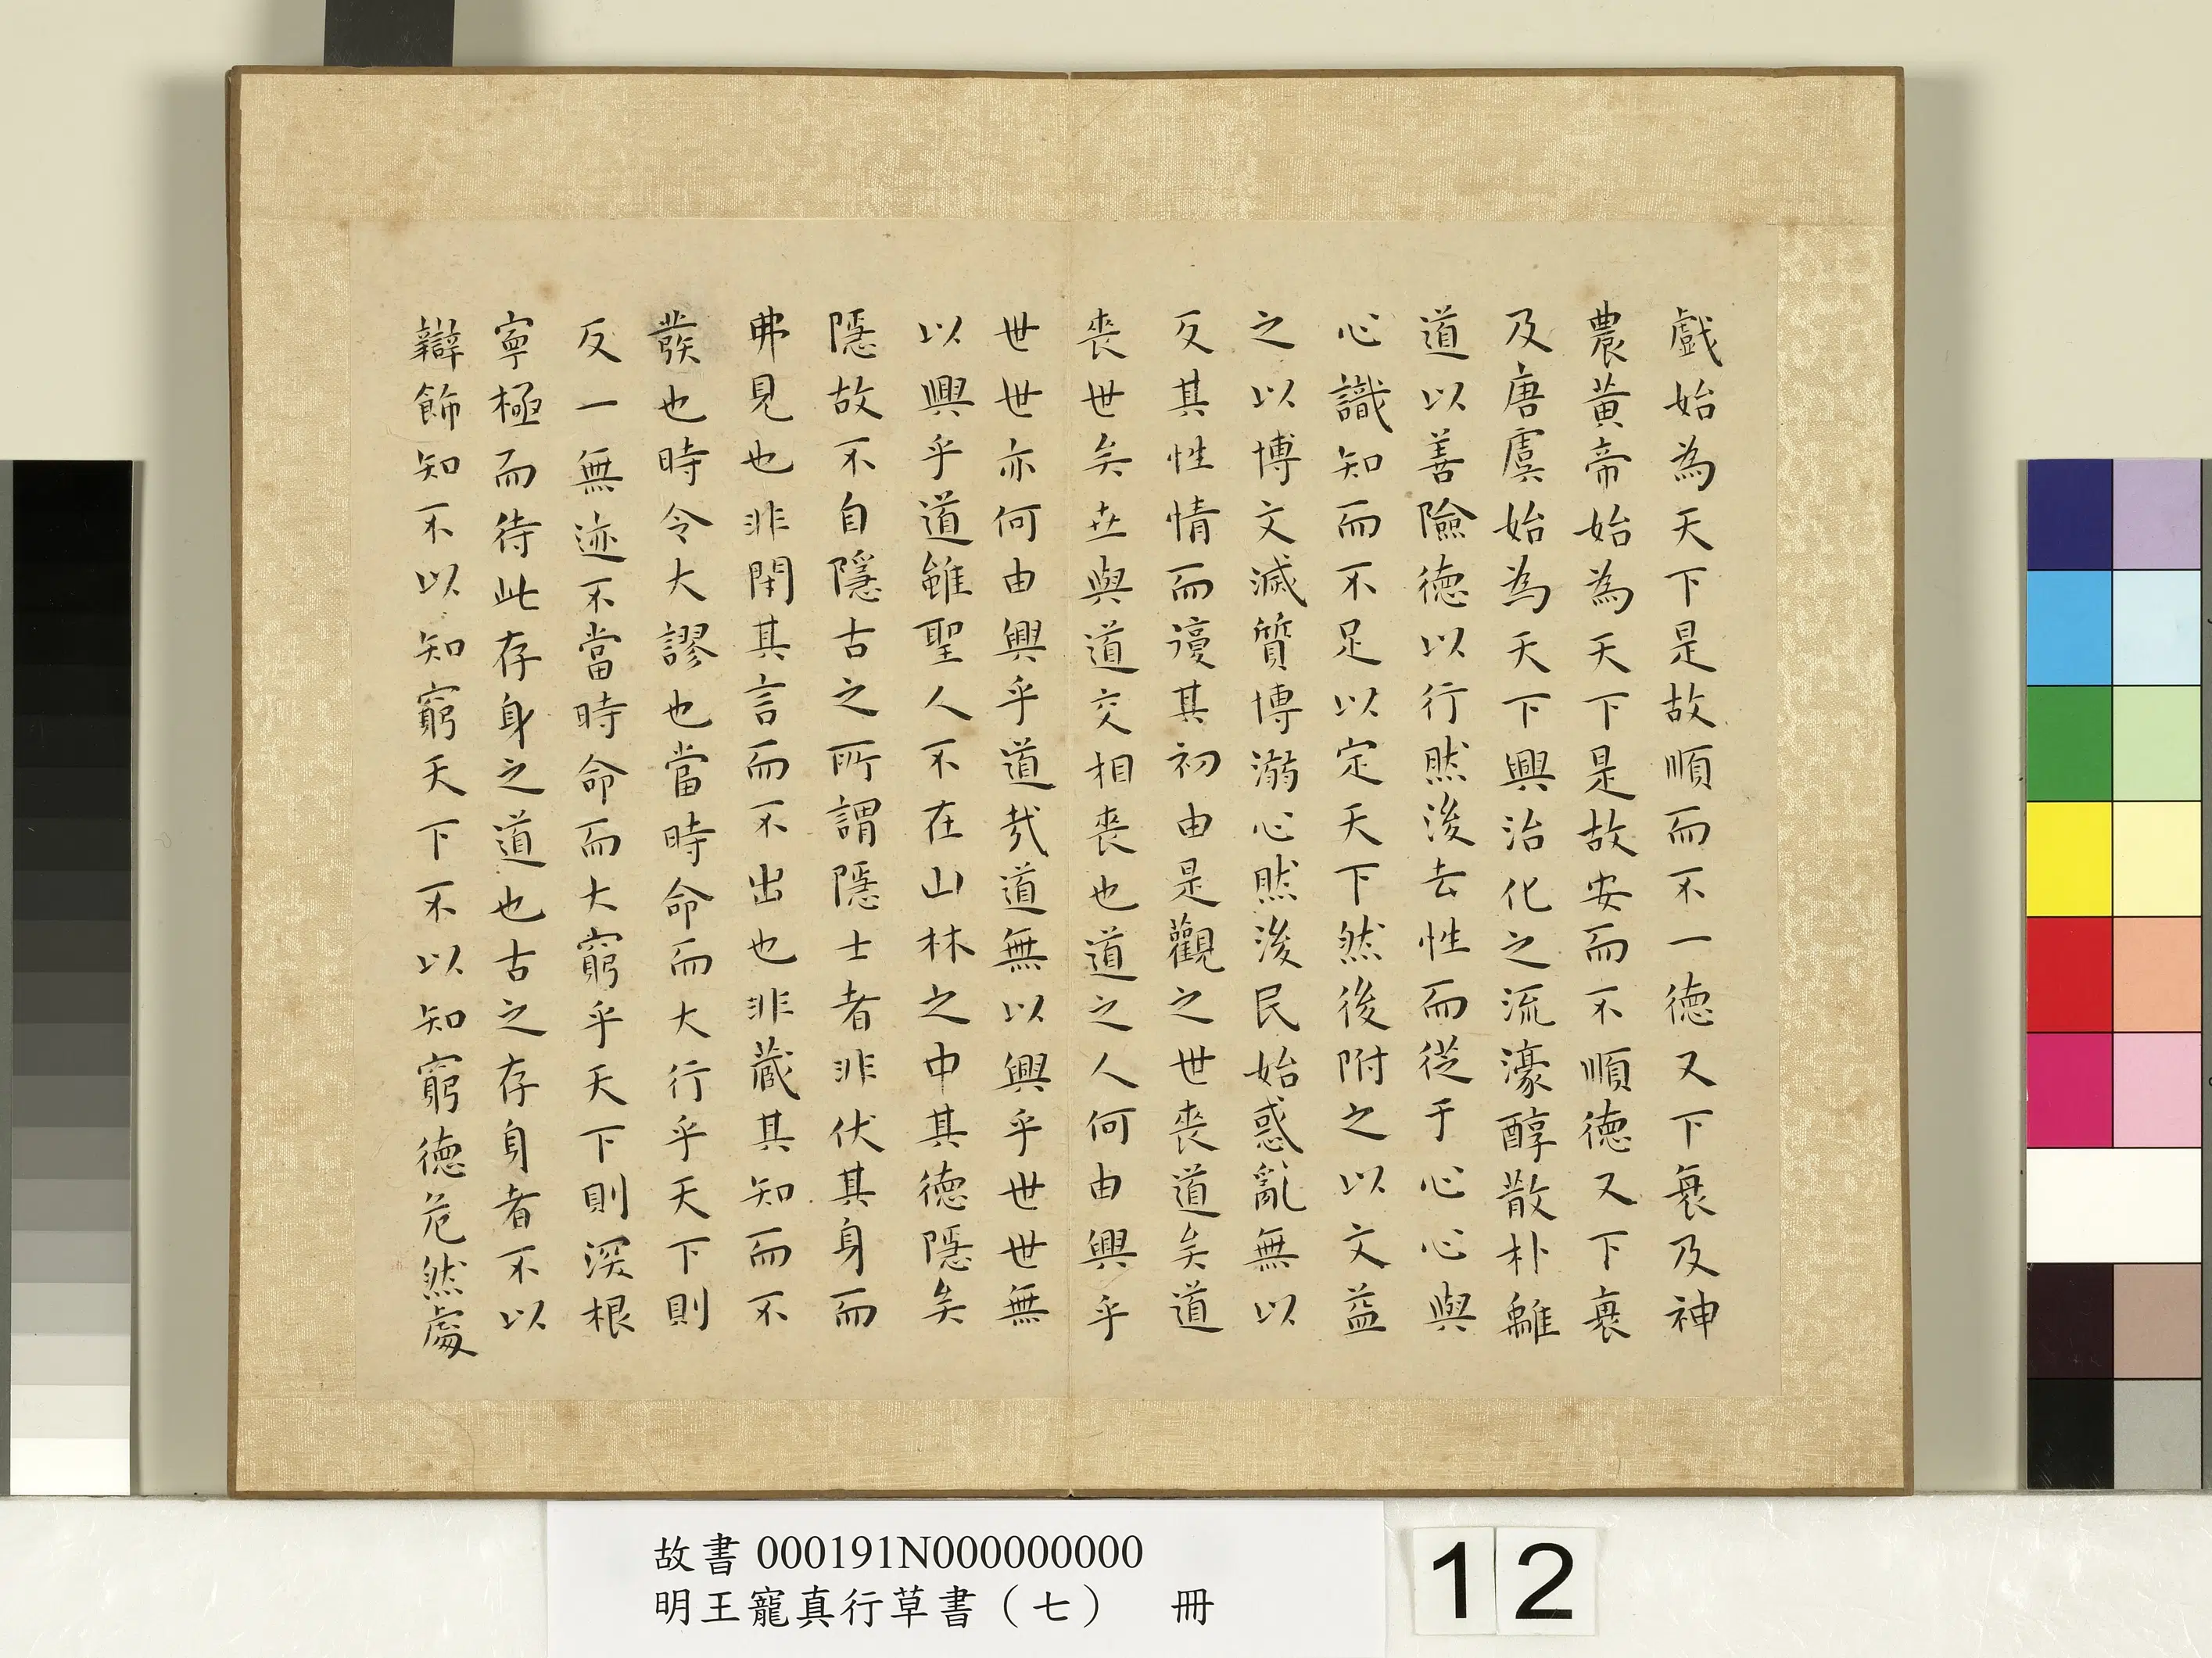 戲始為天下是故順而不一德又下衰及神
農黃帝始為天下是故安而不順德又下衰
及唐虞始為天下興治化之流濠醇散朴離
道以善險德以行然後去性而從于心心與
心識知而不足以定天下然後附之以文益
之以博文滅質博溺心然後民始惑亂無以
反其性情而復其初由是觀之世喪道矣道
喪世矣世與道交相喪也道之人何由興乎
世世亦何由興乎道哉道無以興乎世世無
以興乎道雖聖人不在山林之中其德隱矣
隱故不自隱古之所謂隱士者非伏其身而
弗見也非閉其言而不出也非藏其知而不
發也時令大謬也當時命而大行乎天下則
反一無迹不當時命而大窮乎天下則深根
寧極而待此存身之道也古之存身者不以
辯飾知不以知窮天下不以知窮德危然處
故書 000191N000000000
明王寵真行草書（七） 冊
12